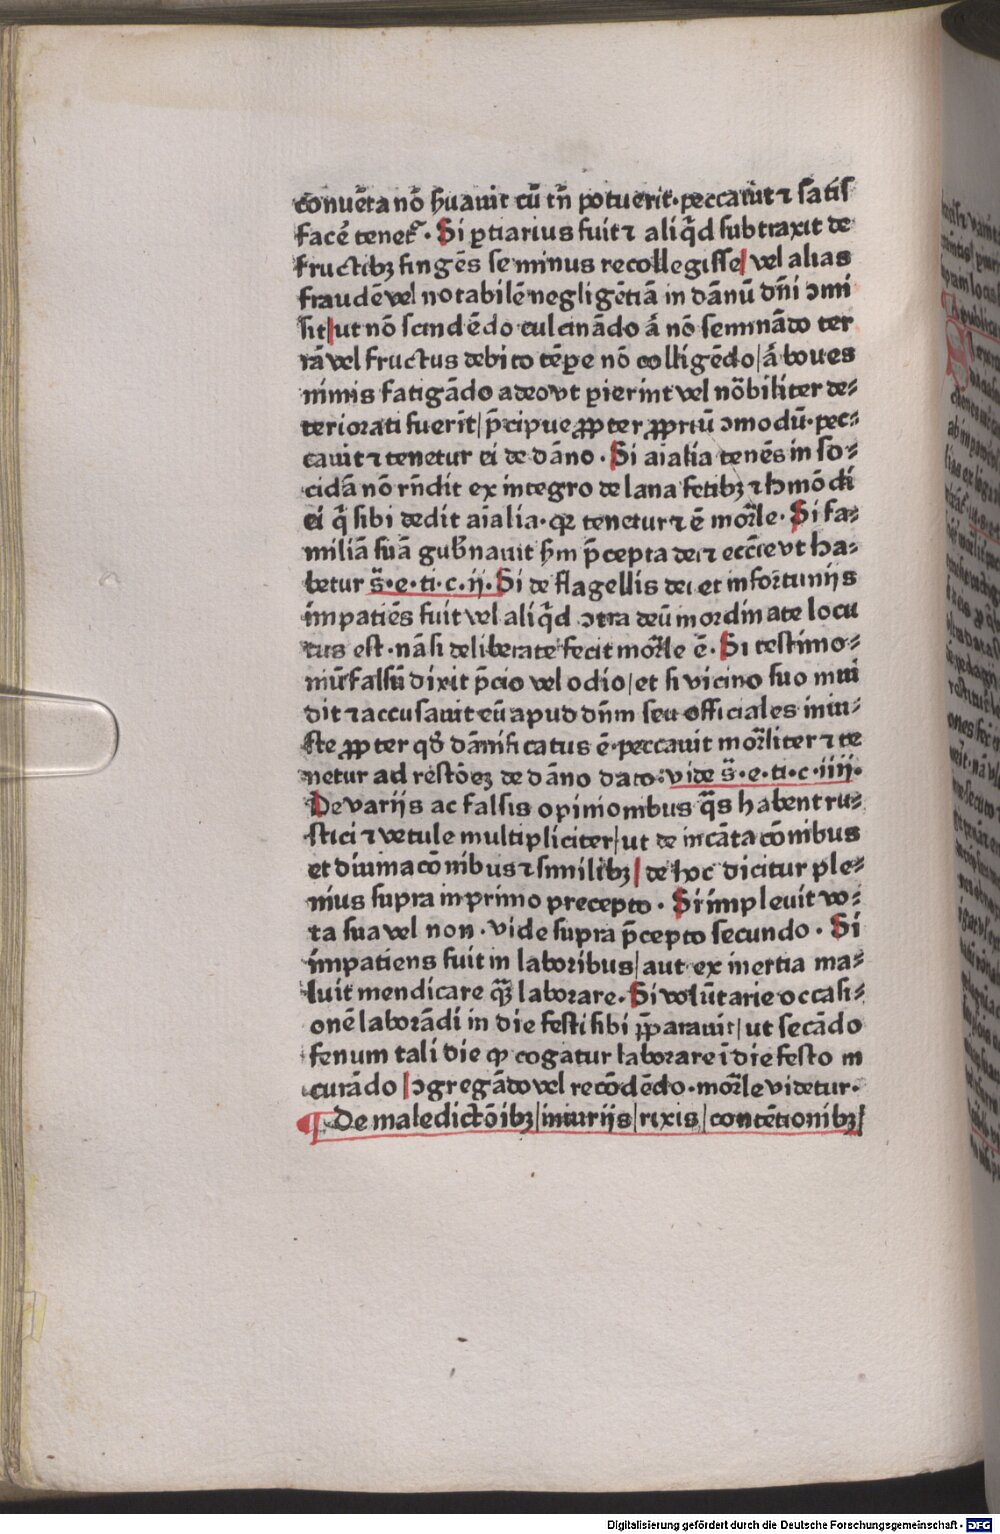 conuēta nō ẜuauit cū tn̄ potuerit·peccauit ⁊ satis
facē̄ tenet᷑· Si ꝑtiarius fuit ⁊ aliq̇d subtraxit de
fructibꝫ fingēs se minus recollegisse/ vel alias
fraudē vel notabilē negligētiā in dānū dn̄i ꝯmi
sit/ut nō scindēdo culcinādo ā nō semināto ter
rā vel fructus debito tēꝑe nō colligēdo/ā boues
nimis fatigādo adeo vt ꝑierint vel nōbiliter de⸗
teriorati fuerit/p̄cipue ꝓpter ꝓpriū ꝯmodū·pec⸗
cauit ⁊ tenetur ei de dāno· Si aīalia tenēs in so⸗
cidā nō rn̄dit ex integro de lana fetibꝫ ⁊ hmōdi
ei q̇ sibi dedit aīalia·qꝛ tenetur ⁊ ē mor̄le· Si fa⸗
miliā suā gub̄nauit ẜm p̄cepta dei ⁊ ecc̄ie vt ha⸗
betur s̄·e·ti·c·ij· Si de flagellis dei et infortunijs
impatiēs fuit vel aliq̇d ꝯtra deū inordinate locu
tus est·nā si deliberate fecit mor̄le ē· Si testimo⸗
niū falsū dixit p̄cio vel odio/et si vicino suo inui
dit ⁊ accusauit eū apud dn̄m seu officiales iniu⸗
ste ꝓpter qd̄ dānificatus ē·peccauit mor̄liter ⁊ te
netur ad restōeꝫ de dāno dato·vide s̄·e·ti·c·iiij·
De varijs ac falsis opinionibus q̄s habent ru⸗
stici ⁊ vetule multipliciter/ut de incātacōnibus
et diuinacōnibus ⁊ similibꝫ/ de hoc dicitur ple⸗
nius supra in primo precepto· Si impleuit vo⸗
ta sua vel non·vide supra p̄cepto secundo· Si
impatiens fuit in laboribus/aut ex inertia ma⸗
luit mendicare q̄ꝫ laborare· Si volūtarie occasi⸗
onē laborādi in die festi sibi p̄parauit/ut secādo
fenum tali die ꝙ cogatur laborare ī die festo in
curādo/ꝯgregādo vel recōdēdo·mor̄le videtur·
¶ De maledictōibꝫ/iniurijs/rixis/contētionibꝫ/
Digitalisierung gefördert durch die Deutsche Forschungsgemeinschaft - DFG